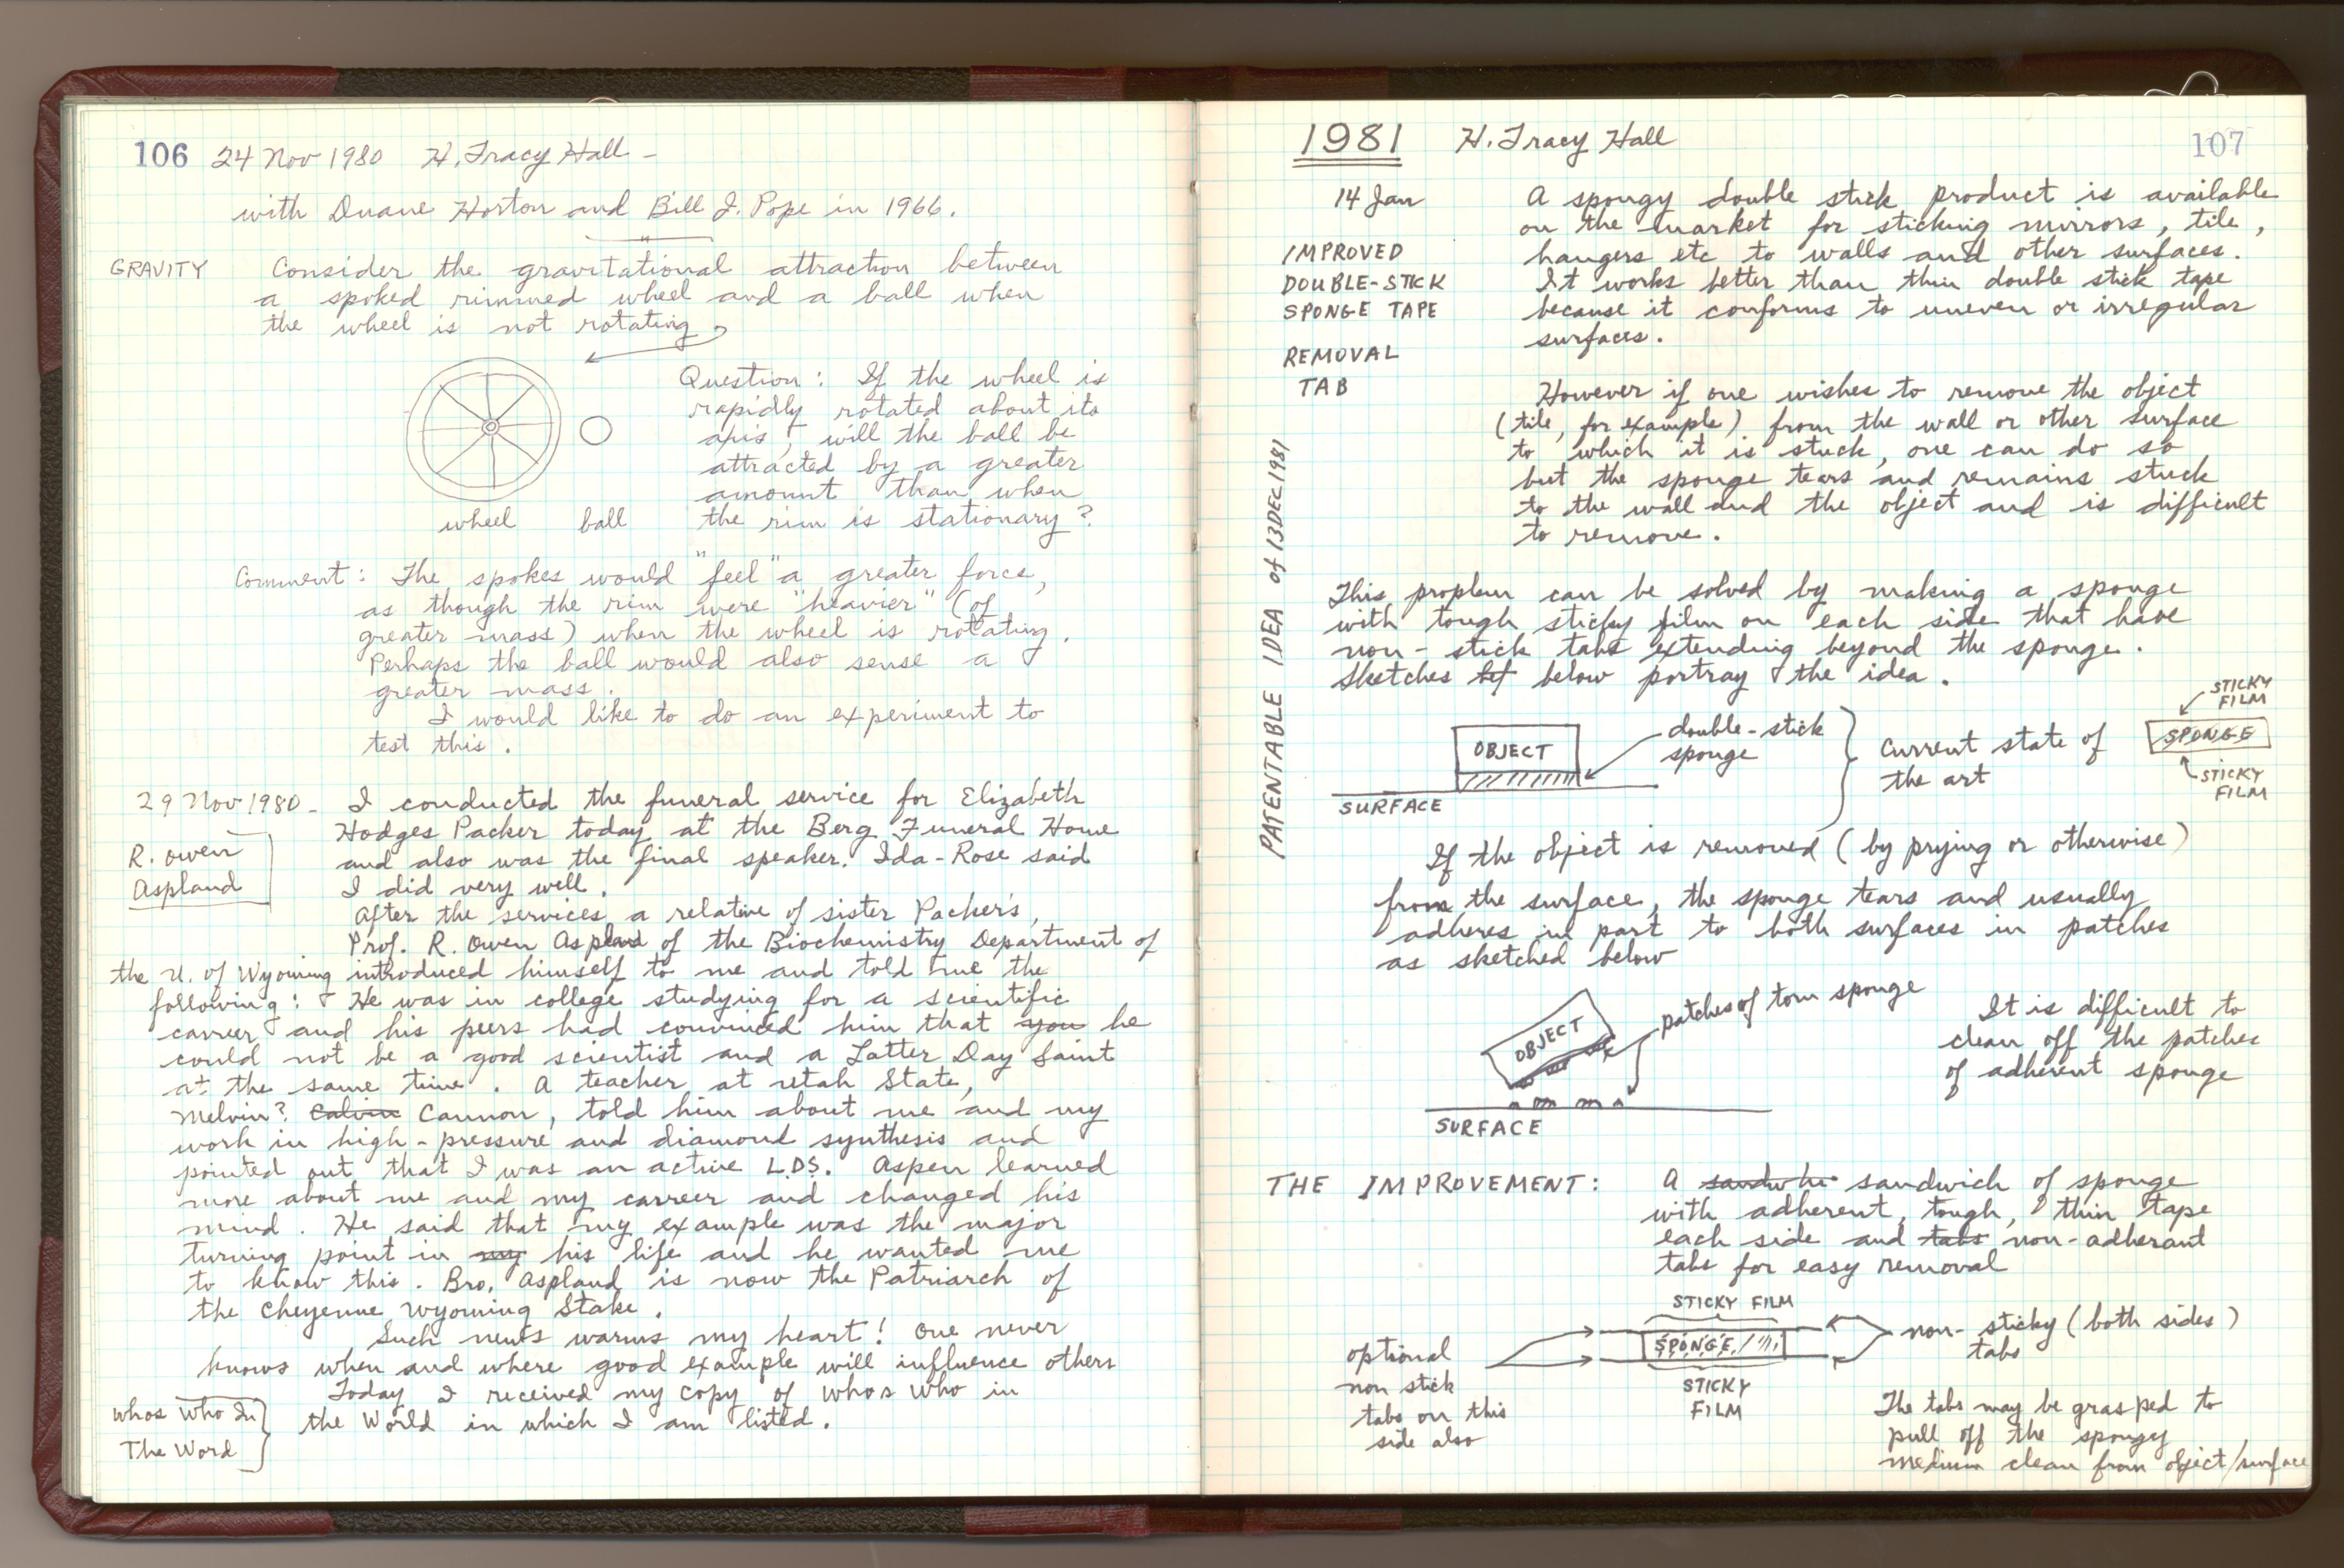 106 24 Nov 1980 H. Tracy Hall -
with Duane Horton and Bill J. Pope in 1966.
GRAVITY Consider the gravitational attraction between
a spoked rimmed wheel and a ball when
the wheel is not rotating
Question: If the wheel is
rapidly rotated about its
axis, will the ball be
attracted by a greater
amount than when
wheel ball the rim is stationary?
Comment: The spokes would "feel" a greater force,
as though the rim were "heavier" (of
greater mass) when the wheel is rotating.
Perhaps the ball would also sense a
greater mass.
I would like to do an experiment to
test this.
29 Nov 1980 - I conducted the funeral service for Elizabeth
Hodges Packer today at the Berg Funeral Home
R. Owen and also was the final speaker. Ida-Rose said
Aspland I did very well.
After the services a relative of sister Packer's,
Prof. R. Owen Aspland of the Biochemistry Department of
the U. of Wyoming introduced himself to me and told me the
following: He was in college studying for a scientific
carreer and his peers had convinced him that you he
could not be a good scientist and a Latter Day Saint
at the same time. A teacher at Utah State,
Melvin? Calvin Cannon, told him about me and my
work in high-pressure and diamond synthesis and
pointed out that I was an active L.D.S. Aspen learned
more about me and my carreer and changed his
mind. He said that my example was the major
turning point in my his life and he wanted me
to know this. Bro. Aspland is now the Patriarch of
the Cheyenne Wyoming Stake.
Such news warms my heart! One never
knows when and where good example will influence others
Today I received my copy of Whos Who in
Whos Who In the World in which I am listed.
The Word
1981 H. Tracy Hall 107
14 Jan A spongy double stick product is available
on the market for sticking mirrors, tile,
IMPROVED hangers etc to walls and other surfaces.
DOUBLE-STICK It works better than thin double stick tape
SPONGE TAPE because it conforms to uneven or irregular
surfaces.
REMOVAL
TAB However if one wishes to remove the object
(tile, for example) from the wall or other surface
to which it is stuck, one can do so
but the sponge tears and remains stuck
to the wall and the object and is difficult
to remove.
PATENTABLE IDEA of 13 DEC 1981
This problem can be solved by making a sponge
with tough sticky film on each side that have
non-stick tabs extending beyond the sponge.
Sketches bel below portray the idea.
STICKY
FILM
OBJECT double-stick
sponge
Current state of
the art
SPONGE
STICKY
FILM
SURFACE
If the object is removed (by prying or otherwise)
from the surface, the sponge tears and usually
adheres in part to both surfaces in patches
as sketched below
OBJECT patches of torn sponge
It is difficult to
clean off the patches
of adherent sponge
SURFACE
THE IMPROVEMENT: A sandwhe sandwich of sponge
with adherent, tough, thin tape
each side and tabs non-adherant
tabs for easy removal
STICKY FILM
SPONGE
non-sticky (both sides)
tabs
optional
non stick
tabs on this
side also
STICKY
FILM
The tabs may be grasped to
pull off the spongy
medium clean from object/surface